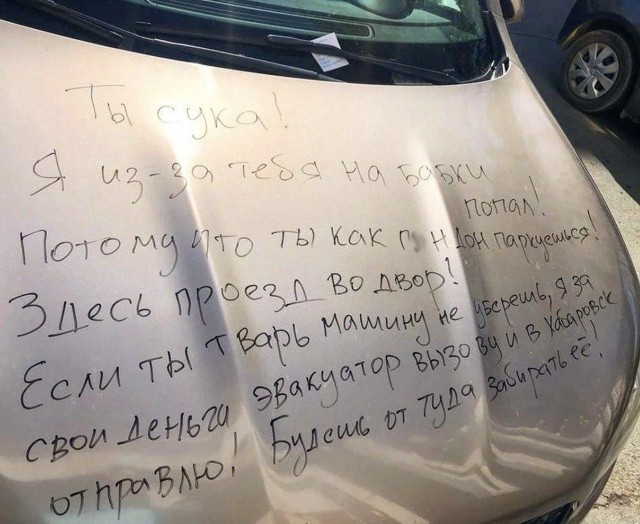 Ты сука!
Я из-за тебя на бабки
попал!
Потому что ты как г ндон паркуешься!
Здесь проезд во двор!
Если ты тварь машину не уберешь, я за
свои деньги эвакуатор вызову и в Хабаровск
отправлю! Будешь от туда забирать её!